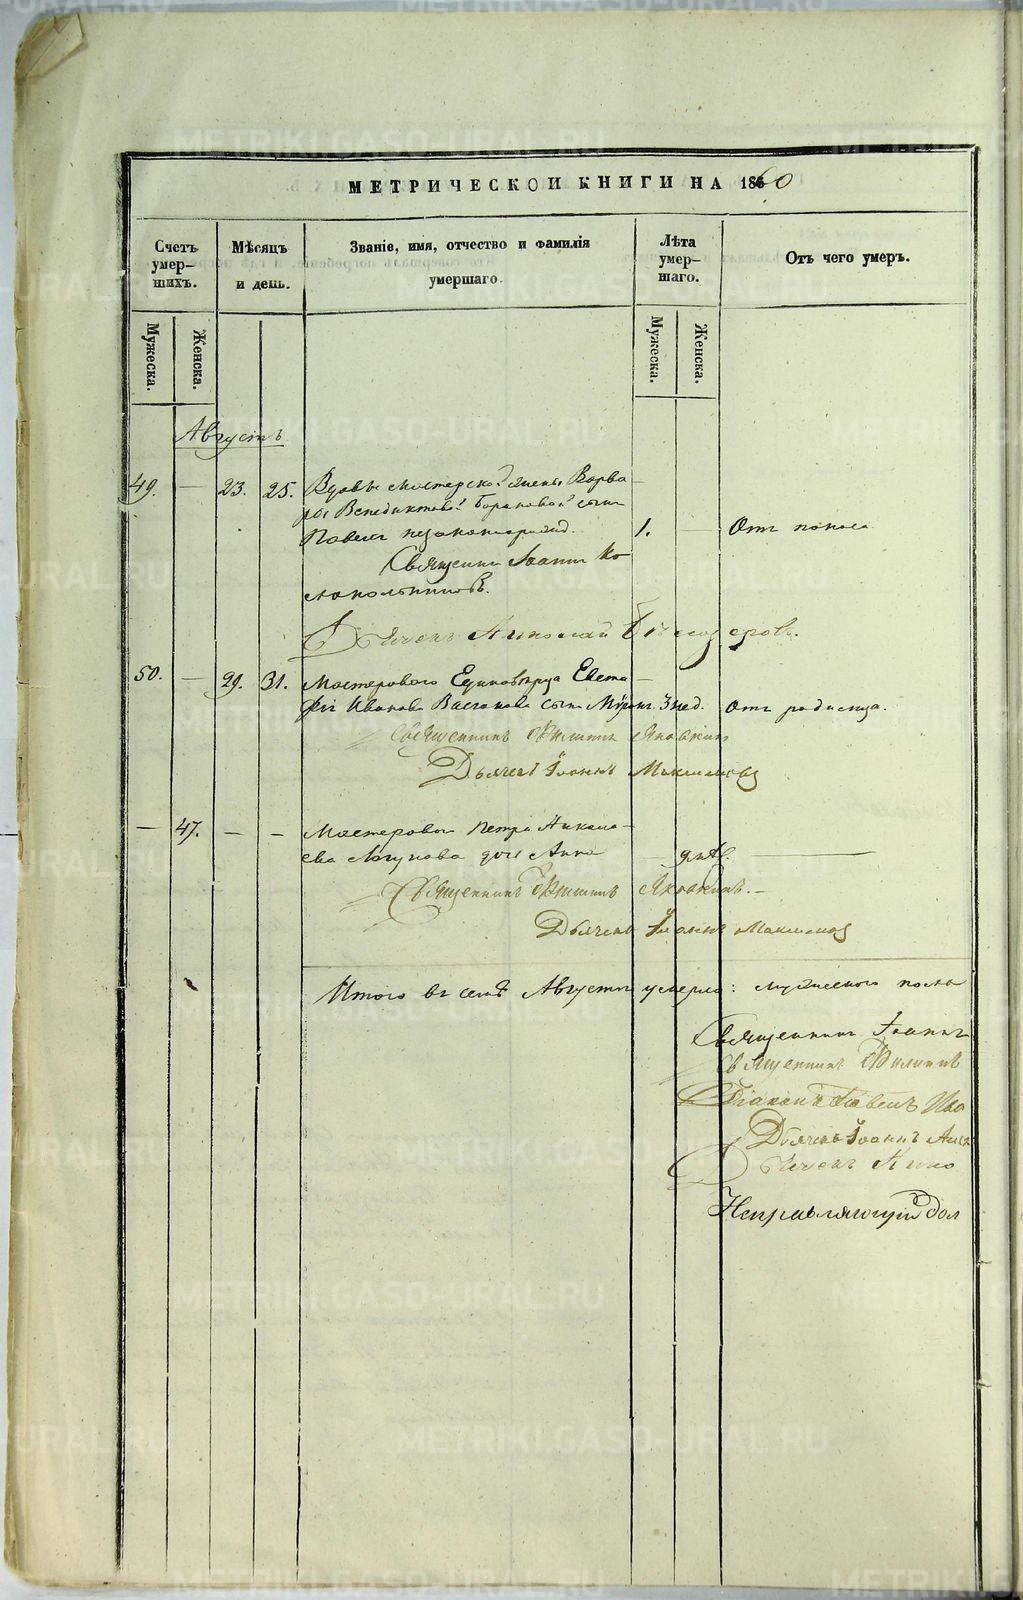 МЕТРИЧЕСКОЙ КНИГИ НА 1860
Счетъ умер-
шихъ.
Мѣсяцъ
и день.
Званіе, имя, отчество и фамилія
умершаго.
Лѣта
умер-
шаго.
Отъ чего умеръ.
Мужеска.
Женска.
Мужеска.
Женска.
Августъ.
49. — 23. 25. Вдовы мастерской жены Варва-
ры Венедиктовой сынъ
Павелъ незаконнорожд. 1. — Отъ поноса
Священникъ Іоаннъ Ко-
локольниковъ.
Дьячекъ Николай Бѣлозеровъ.
50. — 29. 31. Мастероваго Единовѣрца Евста-
фія Иванова сынъ 3 нед. Отъ родимца.
Священникъ Филиппъ Яковкинъ
Дьячекъ Іоаннъ Максимовъ
— 47. — — Мастероваго Петра Никола-
ева дочь Анна —
Священникъ Филиппъ Яковкинъ. —
Дьячекъ Іоаннъ Максимовъ
Итого въ семъ Августѣ умерло: мужескаго пола
Священникъ Іоаннъ
Священникъ Филиппъ
Діаконъ Павелъ Ива
Дьячекъ Іоаннъ
Дьячекъ Нико
Исправляющій дол
METRIKI.GASO-URAL.RU